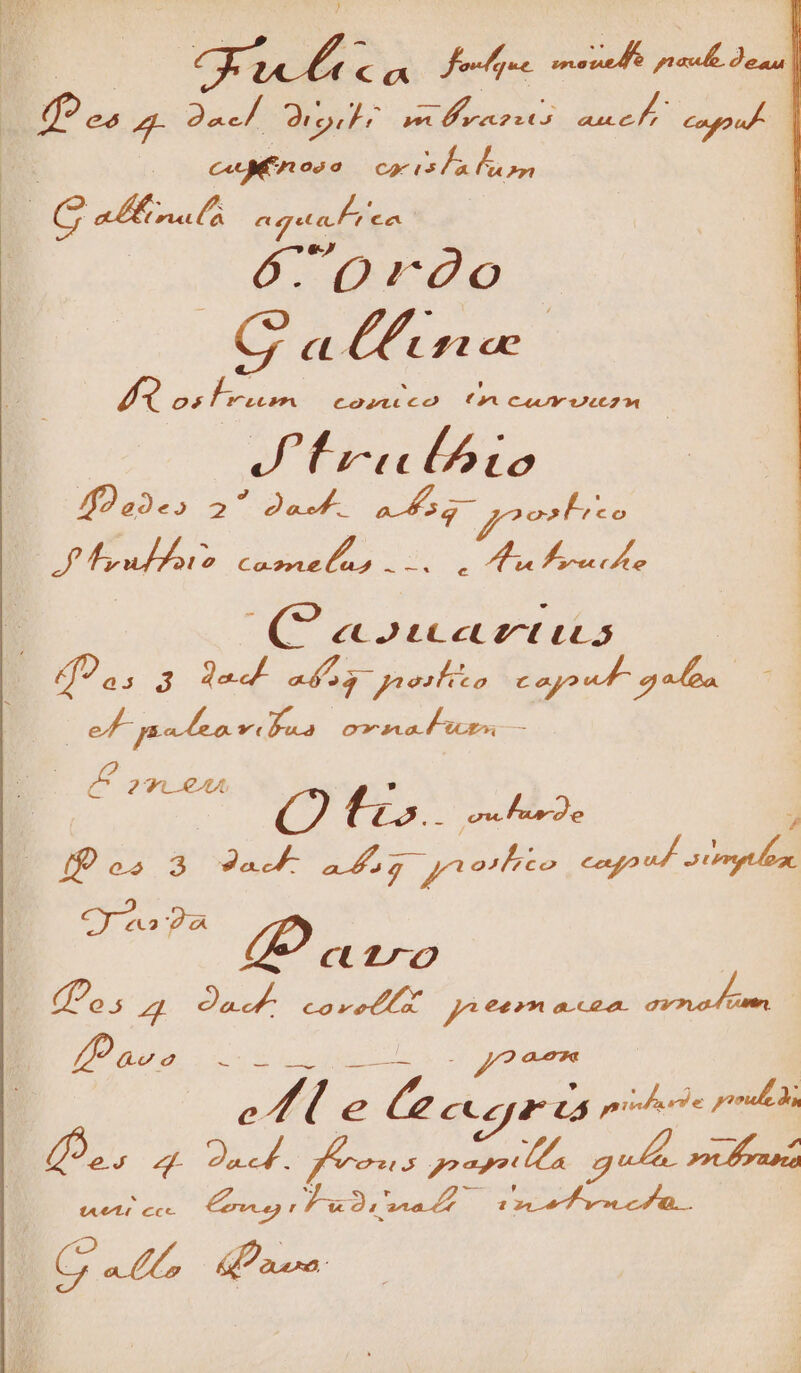 Fulica foulque mouette poule deau
Pes 4 dact digiti m̄branis aucti caput
carnoso cristatum
Gallinula aquatica
6.us Ordo
Gallinæ
Rostrum conico incurvum
Struthio
Pedes 2° dact. absq̄ postico
Struthio camelus - - . Autruche
Casuarius
Pes 3 dact absq̄ postico caput galea
et palearibus ornatum
Emeu
Otis.. outarde
Pes 3 dact. absq̄ postico caput simplex
Tarda
Pavo
Pes 4 dact. corollâ pennacea ornatum
Pavo - - - - - paon
Meleagris pintarde poule din
Pes 4 dact. frons papilla gula m̄brana
unica longitudinali instructa
Gallo Pavo